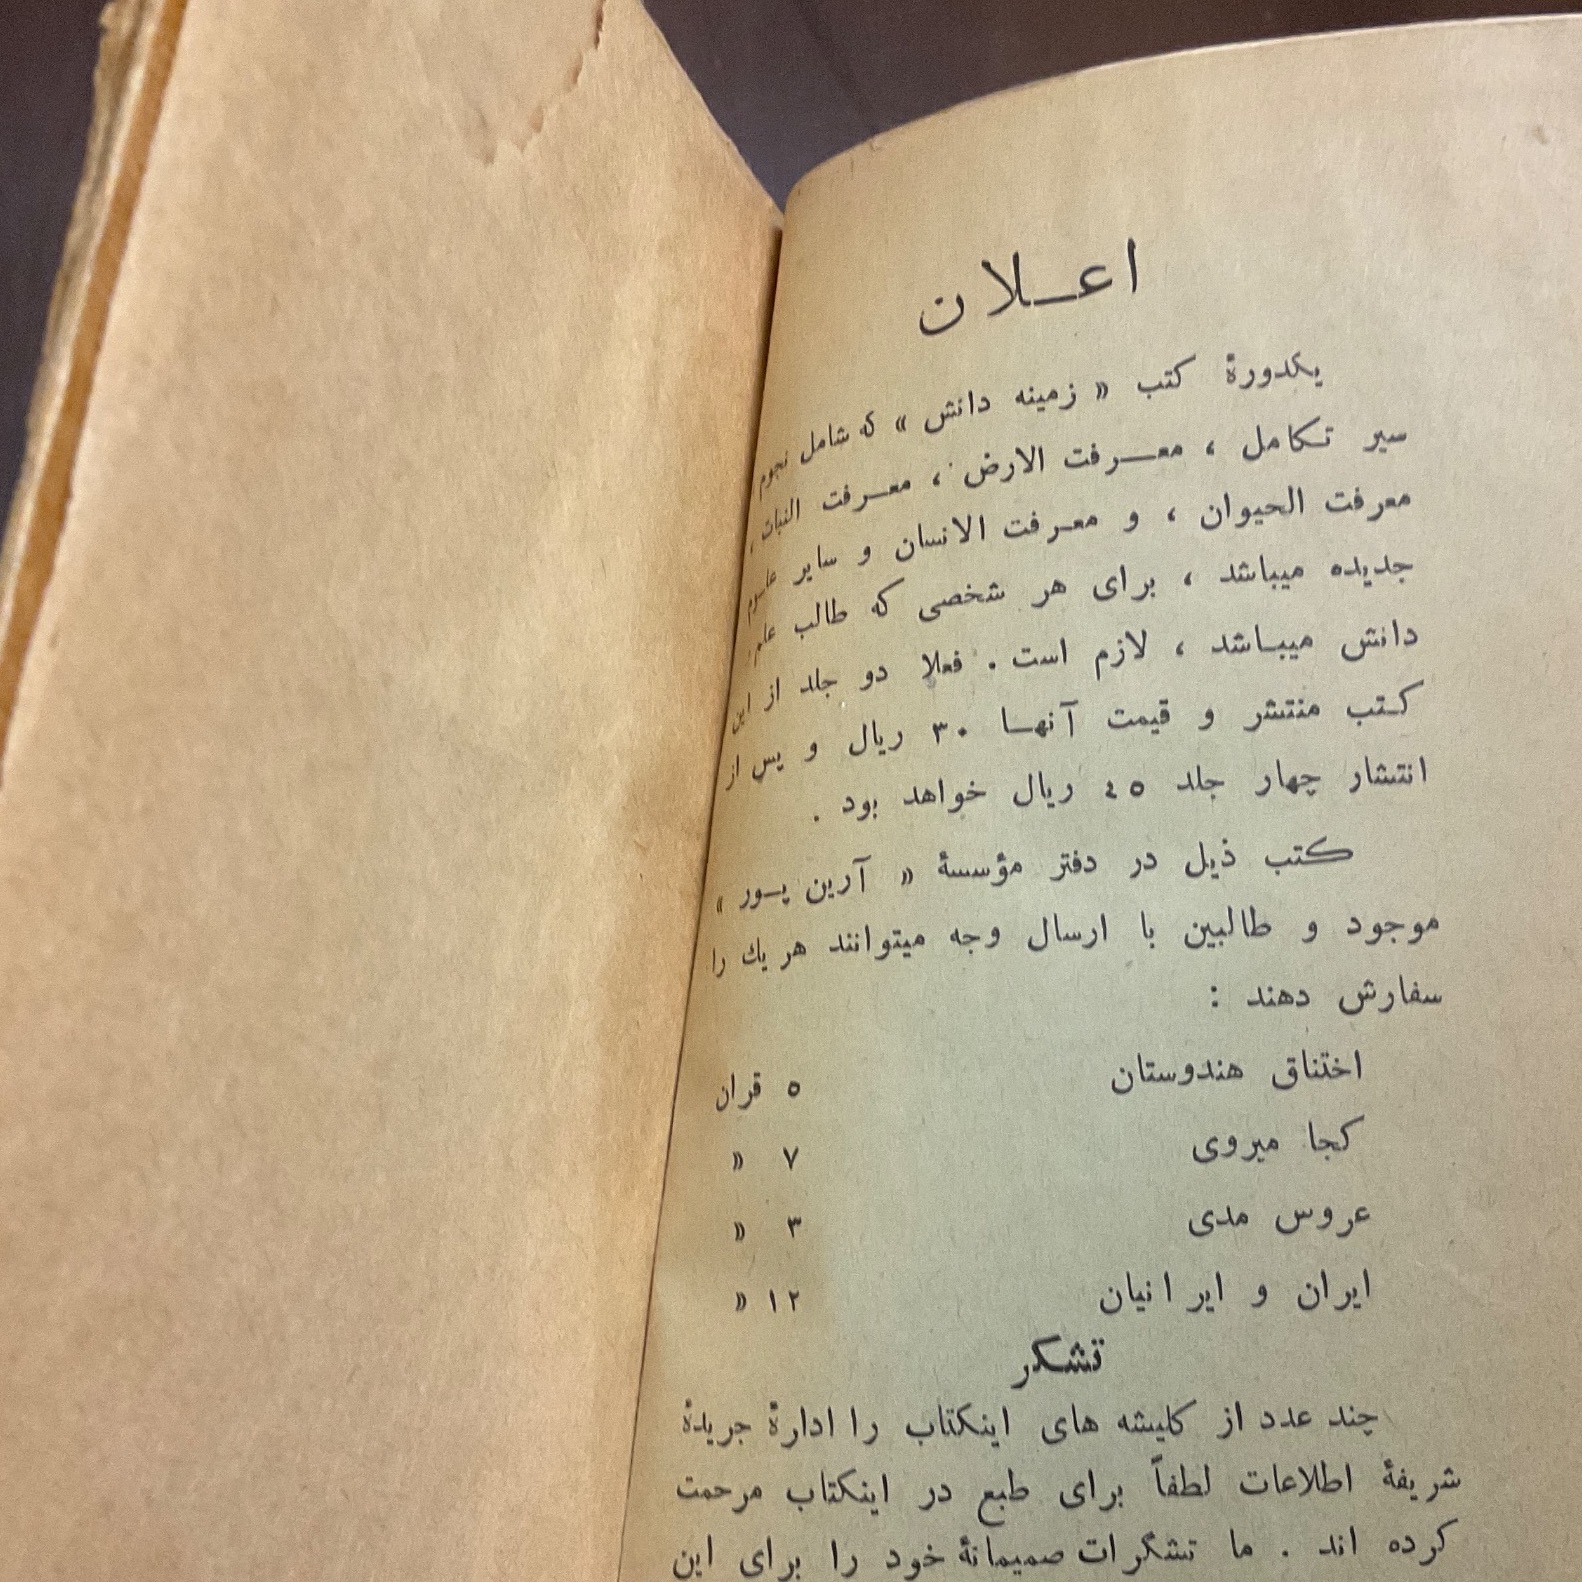 اعـلان
یکدورهٔ کتب « زمینه دانش » که شامل نجوم
سیر تـکامل ، معـرفت الارض ، معـرفت النبات ،
معرفت الحیوان ، و معـرفت الانسان و سایر علـوم
جدیده میباشد ، برای هر شخصی که طالب علم
دانش میبـاشد ، لازم است . فعلا دو جلد از این
کـتب منتشر و قیمت آنهـا ۳۰ ریال و پس از
انتشار چهار جلد ٤٥ ریال خواهد بود .
کتب ذیل در دفتر مؤسسهٔ « آرین پـور »
موجود و طالبین با ارسال وجه میتوانند هر یك را
سفارش دهند :
اختناق هندوستان ۵ قران
کجا میروی ۷ »
عروس مدی ۳ »
ایران و ایرانیان ۱۲ »
تشکر
چند عدد از کلیشه های اینکتاب را ادارهٔ جریدهٔ
شریفهٔ اطلاعات لطفاً برای طبع در اینکتاب مرحمت
کرده اند . ما تشکرات صمیمانهٔ خود را برای این